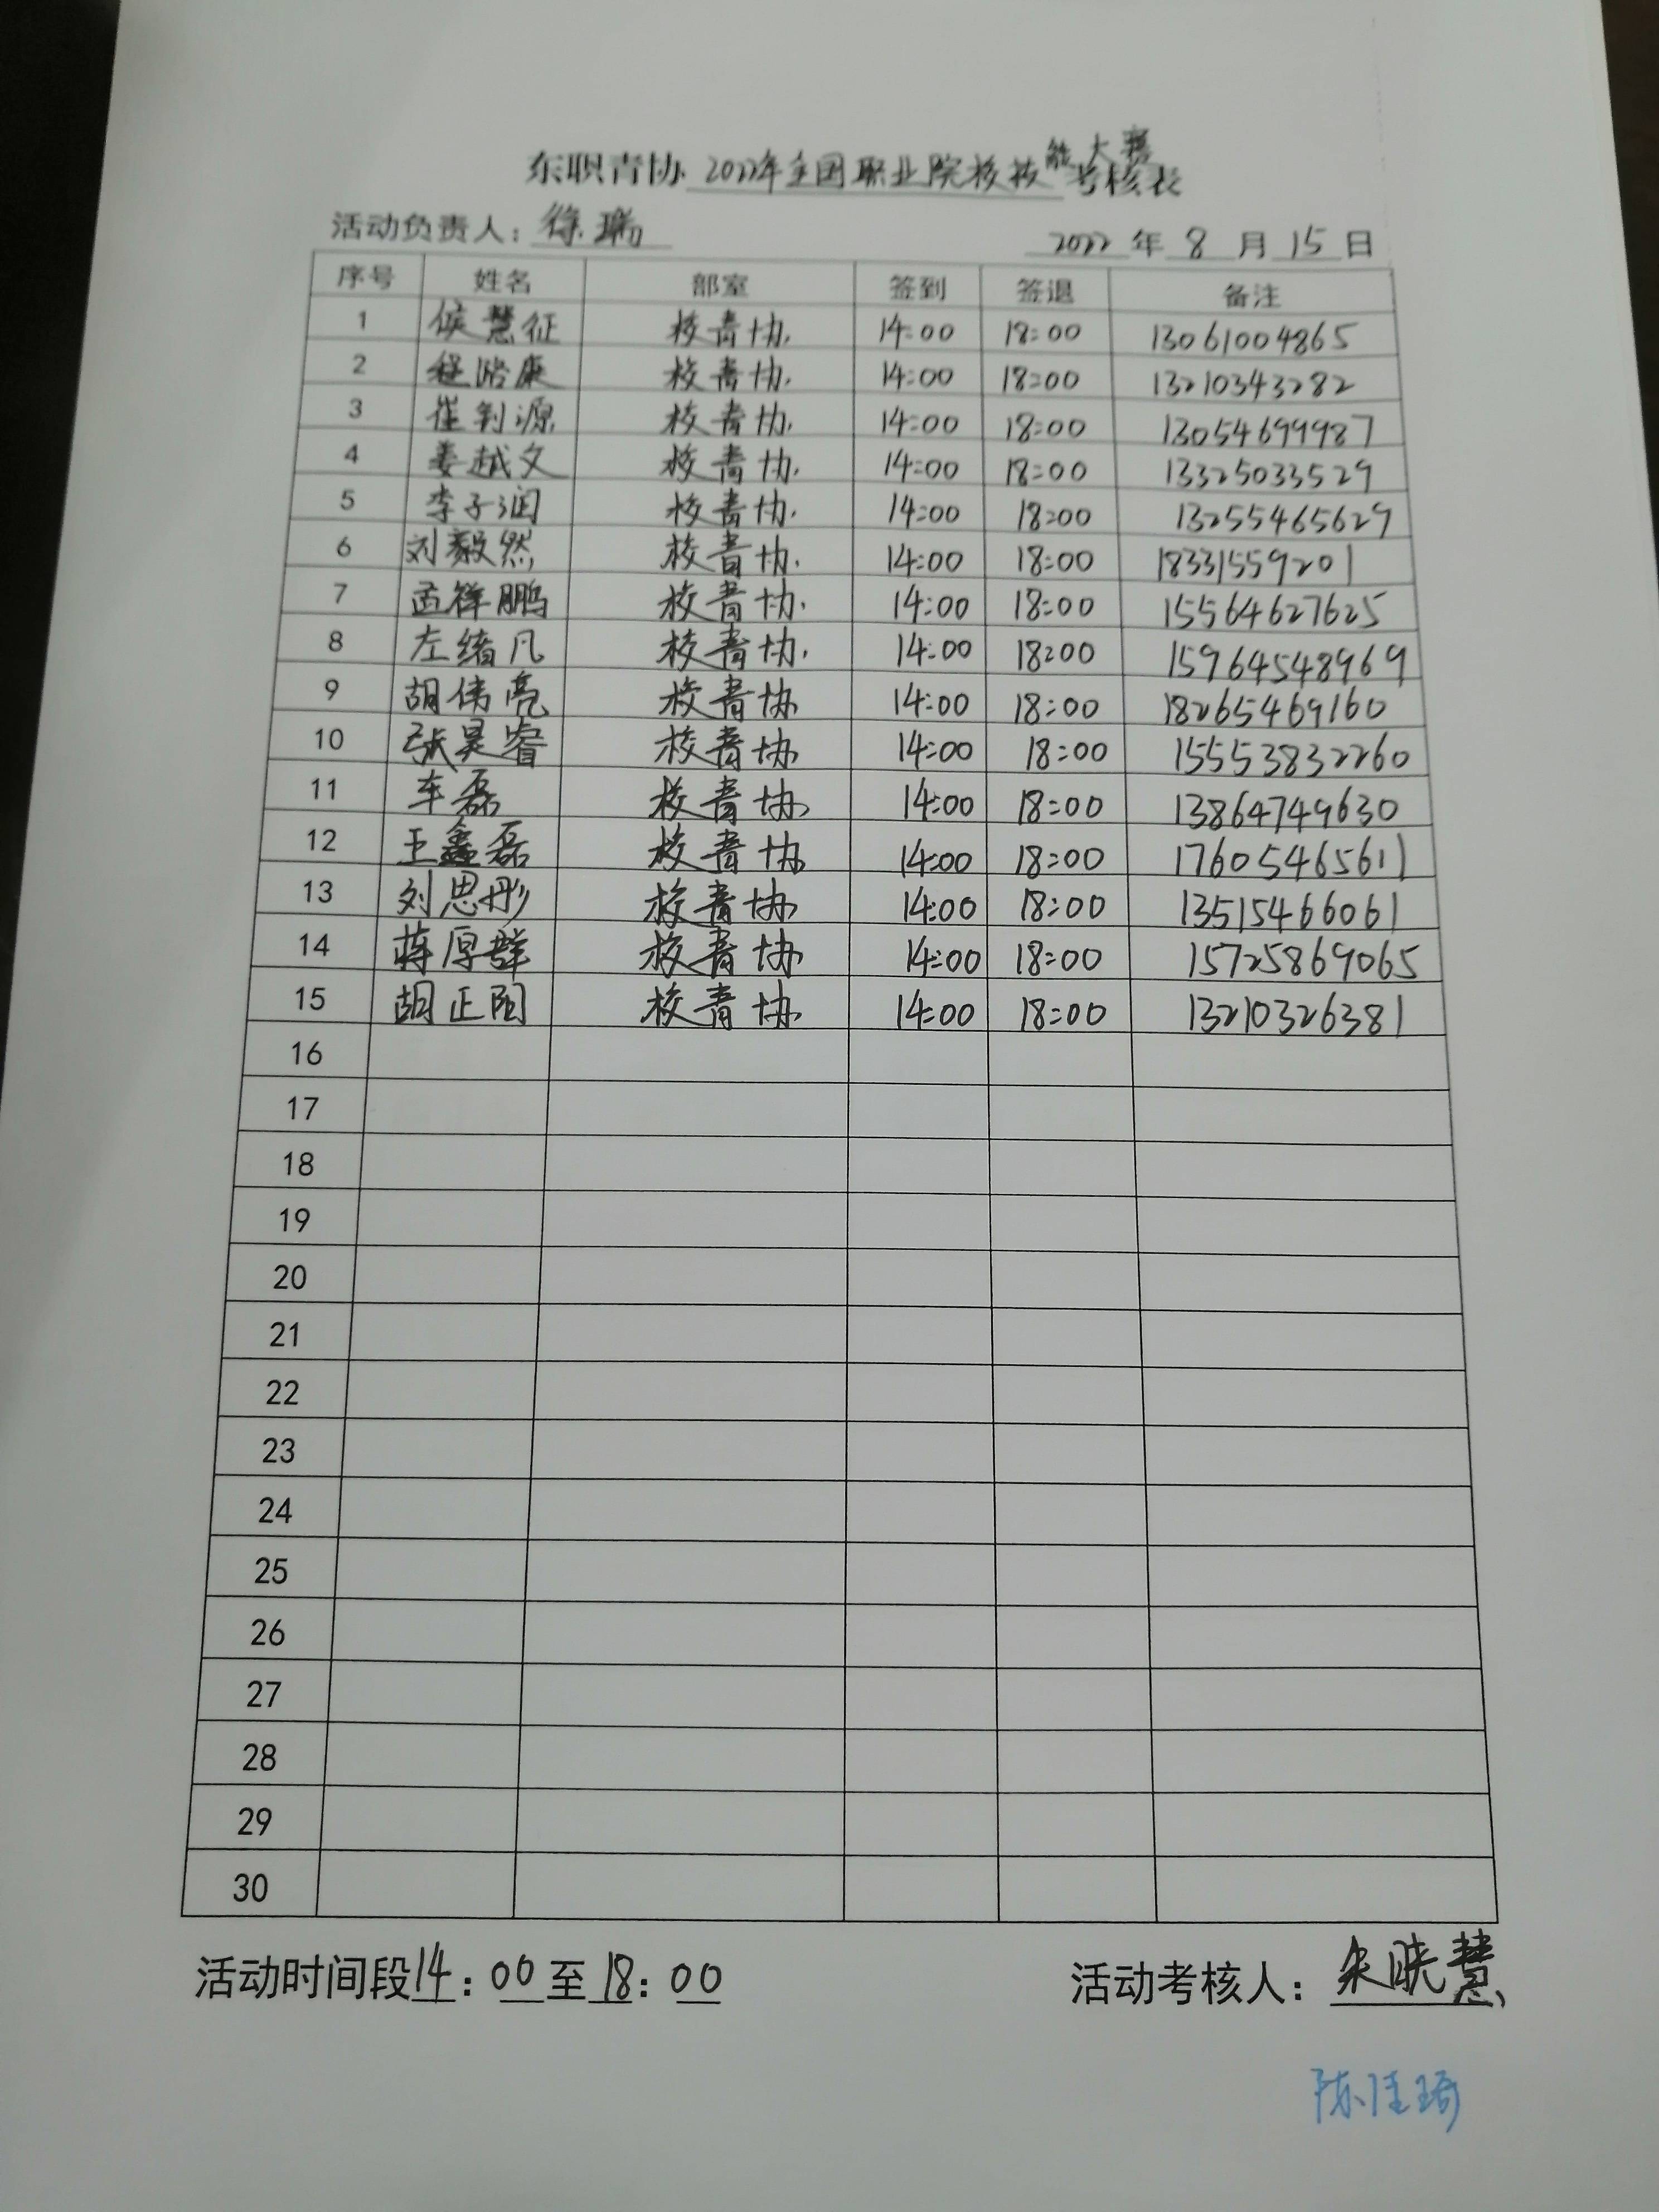 东职青协 2022年全国职业院校技能大赛 考核表
活动负责人：徐瑞 2022 年 8 月 15 日
序号 姓名 部室 签到 签退 备注
1 侯慧征 校青协 14:00 18:00 13061004865
2 程潞康 校青协 14:00 18:00 13210343282
3 崔钊源 校青协 14:00 18:00 13054699987
4 姜越文 校青协 14:00 18:00 13325033529
5 李子润 校青协 14:00 18:00 13255465629
6 刘毅然 校青协 14:00 18:00 18331559201
7 孟祥鹏 校青协 14:00 18:00 15564627625
8 左绪凡 校青协 14:00 18:00 15964548969
9 胡伟亮 校青协 14:00 18:00 18265469160
10 张昊睿 校青协 14:00 18:00 15553832260
11 车磊 校青协 14:00 18:00 13864749630
12 王鑫磊 校青协 14:00 18:00 17605465611
13 刘思彤 校青协 14:00 18:00 13515466061
14 蒋厚群 校青协 14:00 18:00 15725869065
15 胡正阳 校青协 14:00 18:00 13210326381
16
17
18
19
20
21
22
23
24
25
26
27
28
29
30
活动时间段14：00至18：00 活动考核人：朱晓慧
陈佳琦